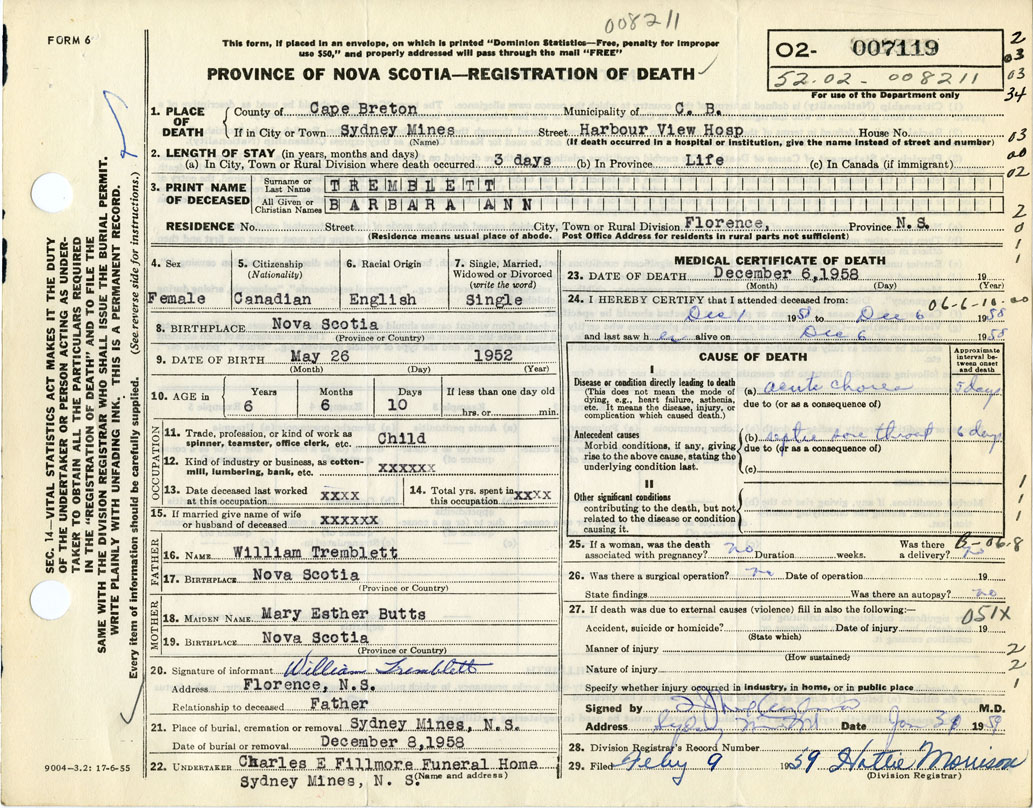 008211
FORM 6
This form, if placed in an envelope, on which is printed "Dominion Statistics—Free, penalty for improper
use $50," and properly addressed will pass through the mail "FREE"
PROVINCE OF NOVA SCOTIA—REGISTRATION OF DEATH
02- 007119
52.02 - 008211
For use of the Department only
2
03
03
34
03
00
02
2
0
1
1
SEC. 14—VITAL STATISTICS ACT MAKES IT THE DUTY
OF THE UNDERTAKER OR PERSON ACTING AS UNDER-
TAKER TO OBTAIN ALL THE PARTICULARS REQUIRED
IN THE "REGISTRATION OF DEATH" AND TO FILE THE
SAME WITH THE DIVISION REGISTRAR WHO SHALL ISSUE THE BURIAL PERMIT.
WRITE PLAINLY WITH UNFADING INK. THIS IS A PERMANENT RECORD.
Every item of information should be carefully supplied. (See reverse side for instructions.)
1. PLACE OF DEATH
County of Cape Breton Municipality of C. B.
If in City or Town Sydney Mines Street Harbour View Hosp House No.
(Name) (If death occurred in a hospital or institution, give the name instead of street and number)
2. LENGTH OF STAY (in years, months and days)
(a) In City, Town or Rural Division where death occurred 3 days (b) In Province Life (c) In Canada (if immigrant)
3. PRINT NAME OF DECEASED
Surname or Last Name TREMBLETT
All Given or Christian Names BARBARA ANN
RESIDENCE No. Street City, Town or Rural Division Florence, Province N.S.
(Residence means usual place of abode. Post Office Address for residents in rural parts not sufficient)
4. Sex Female
5. Citizenship (Nationality) Canadian
6. Racial Origin English
7. Single, Married, Widowed or Divorced (write the word) Single
8. BIRTHPLACE Nova Scotia
(Province or Country)
9. DATE OF BIRTH May 26 1952
(Month) (Day) (Year)
10. AGE in Years 6 Months 6 Days 10 If less than one day old hrs. or min.
OCCUPATION
11. Trade, profession, or kind of work as spinner, teamster, office clerk, etc. Child
12. Kind of industry or business, as cotton-mill, lumbering, bank, etc. xxxxxx
13. Date deceased last worked at this occupation xxxx
14. Total yrs. spent in this occupation xxxx
15. If married give name of wife or husband of deceased xxxxxx
FATHER
16. NAME William Tremblett
17. BIRTHPLACE Nova Scotia
(Province or Country)
MOTHER
18. MAIDEN NAME Mary Esther Butts
19. BIRTHPLACE Nova Scotia
(Province or Country)
20. Signature of informant William Tremblett
Address Florence, N.S.
Relationship to deceased Father
21. Place of burial, cremation or removal Sydney Mines, N.S.
Date of burial or removal December 8,1958
22. UNDERTAKER Charles E Fillmore Funeral Home
Sydney Mines, N. S. (Name and address)
9004—3.2: 17-6-55
MEDICAL CERTIFICATE OF DEATH
23. DATE OF DEATH December 6,1958 19
(Month) (Day) (Year)
24. I HEREBY CERTIFY that I attended deceased from: 06-6-10-00
Dec 1 1958 to Dec 6 1958
and last saw h er alive on Dec 6 1958
CAUSE OF DEATH
Approximate interval between onset and death
I
Disease or condition directly leading to death
(This does not mean the mode of dying, e.g., heart failure, asthenia, etc. It means the disease, injury, or complication which caused death.)
(a) acute chorea 5 days
due to (or as a consequence of)
Antecedent causes
Morbid conditions, if any, giving rise to the above cause, stating the underlying condition last.
(b) septic sore throat 6 days
due to (or as a consequence of)
(c)
II
Other significant conditions
contributing to the death, but not related to the disease or condition causing it.
1
1
1
25. If a woman, was the death associated with pregnancy? no Duration weeks. Was there a delivery? no
B-06.8
26. Was there a surgical operation? no Date of operation 19
State findings Was there an autopsy? no
27. If death was due to external causes (violence) fill in also the following:—
051X
Accident, suicide or homicide? Date of injury 19
(State which)
Manner of injury 2
(How sustained)
Nature of injury 2
Specify whether injury occurred in industry, in home, or in public place 1
Signed by M.D.
Address Sydney Mines Date Jan 39 1959
28. Division Registrar's Record Number
29. Filed Feby 9 1959 Hattie Morrison
(Division Registrar)